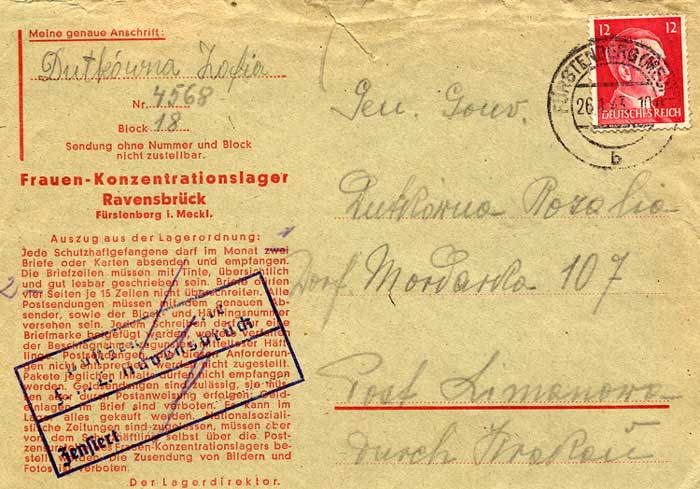 Meine genaue Anschrift:
Dutkówna Zofia
Nr. 4568
Block 18
Sendung ohne Nummer und Block
nicht zustellbar.
Frauen-Konzentrationslager
Ravensbrück
Fürstenberg i. Meckl.
Auszug aus der Lagerordnung:
Jede Schutzhaftgefangene darf im Monat zwei
Briefe oder Karten absenden und empfangen.
Die Briefzeilen müssen mit Tinte, übersichtlich
und gut lesbar geschrieben sein. Briefe dürfen
vier Seiten je 15 Zeilen nicht überschreiten. Alle
Postsendungen müssen mit dem genauen Ab-
sender, sowie der Block und Häftlingsnummer
versehen sein. Jedem Schreiben darf nur eine
Briefmarke beigefügt werden, weitere verfallen
der Beschlagnahme zugunsten mittelloser Häft-
linge. Postsendungen, die diesen Anforderun-
gen nicht entsprechen, werden nicht zugestellt.
Pakete jeglichen Inhalts dürfen nicht empfangen
werden. Geldsendungen sind zulässig, sie müs-
sen aber durch Postanweisung erfolgen; Geld-
einlagen im Brief sind verboten. Es kann im
Lager alles gekauft werden. Nationalsozialis-
tische Zeitungen sind zugelassen, müssen aber
von dem Häftling selbst über die Post-
zensur des Frauen-Konzentrationslagers be-
stellt werden. Die Zusendung von Bildern und
Fotos ist verboten.
Der Lagerdirektor.
2
F.K.L. Ravensbrück
Zensiert
12 12
DEUTSCHES REICH
FÜRSTENBERG (MECKL)
26
43
b
Gen Gouv.
Dutkówna Rozalia
Dorf Mordarka 107
Post Limanowa
durch Krakau